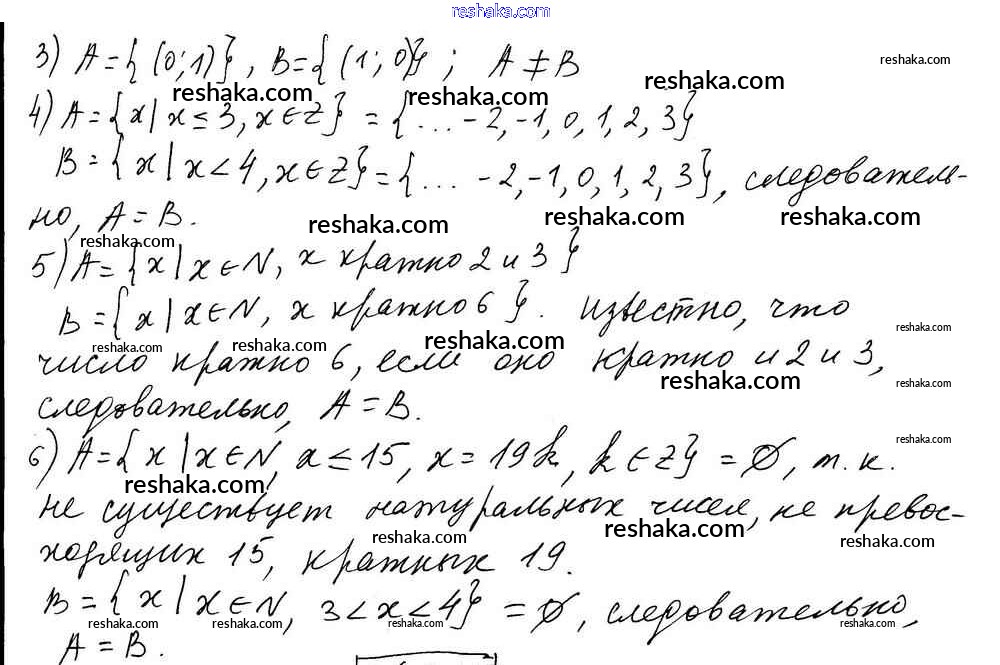 reshaka.com
3) A = { (0; 1)}, B = { (1; 0)}; A ≠ B
reshaka.com
reshaka.com reshaka.com reshaka.com
4) A = {x | x ≤ 3, x ∈ Z} = {... -2, -1, 0, 1, 2, 3}
B = {x | x < 4, x ∈ Z} = {... -2, -1, 0, 1, 2, 3}, следователь-
но, A = B.
reshaka.com reshaka.com reshaka.com
reshaka.com
5) A = {x | x ∈ N, x кратно 2 и 3}
B = {x | x ∈ N, x кратно 6}. Известно, что
reshaka.com reshaka.com reshaka.com reshaka.com
число кратно 6, если оно кратно и 2 и 3,
reshaka.com reshaka.com
следовательно, A = B.
6) A = {x | x ∈ N, x ≤ 15, x = 19k, k ∈ Z} = ∅, т. к.
reshaka.com
reshaka.com
не существует натуральных чисел, не превос-
reshaka.com reshaka.com reshaka.com
ходящих 15, кратных 19.
B = {x | x ∈ N, 3 < x < 4} = ∅, следовательно,
reshaka.com reshaka.com reshaka.com reshaka.com reshaka.com
A = B.